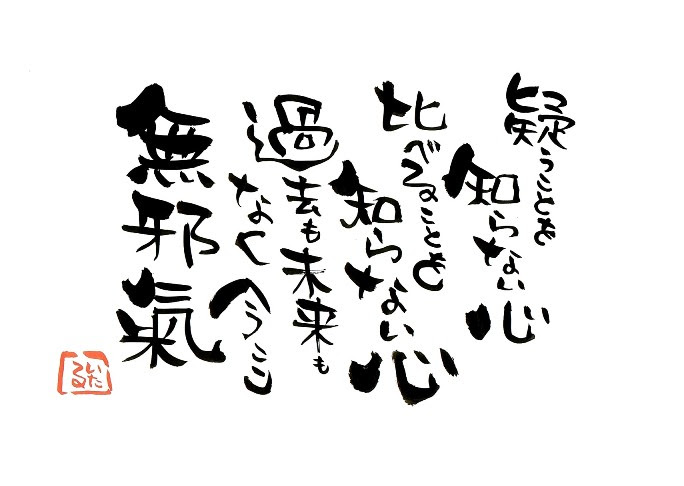 疑うことを
知らない心
比べることを
知らない心
過去も未来も
なく今ここ
無邪氣
いたる